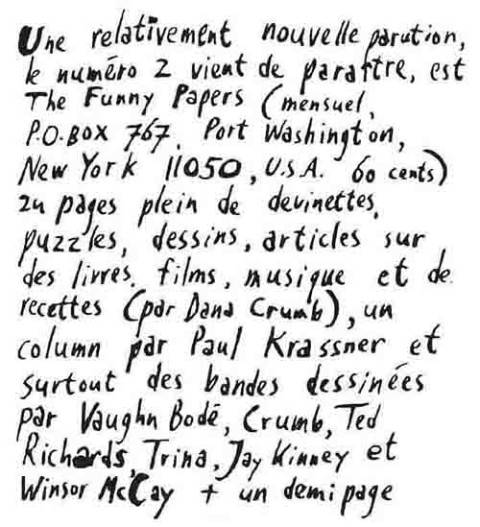 Une relativement nouvelle parution,
le numéro 2 vient de paraître, est
The Funny Papers (mensuel,
P.O.BOX 767, Port Washington,
New York 11050, U.S.A. 60 cents)
24 pages plein de devinettes,
puzzles, dessins, articles sur
des livres, films, musique et de
recettes (par Dana Crumb), un
column par Paul Krassner et
surtout des bandes dessinées
par Vaughn Bodē, Crumb, Ted
Richards, Trina, Jay Kinney et
Winsor McCay + un demi page